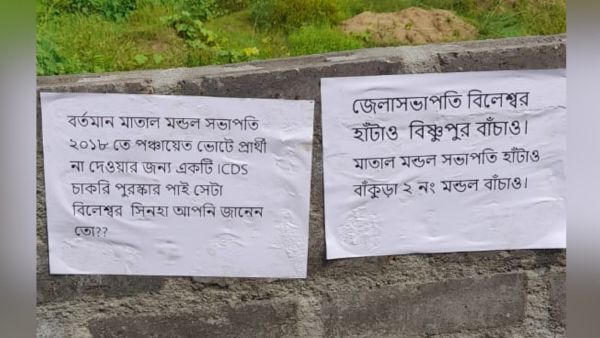 বর্তমান মাতাল মন্ডল সভাপতি
২০১৮ তে পঞ্চায়েত ভোটে প্রার্থী
না দেওয়ার জন্য একটি ICDS
চাকরি পুরস্কার পাই সেটা
বিলেশ্বর সিনহা আপনি জানেন
তো??
জেলাসভাপতি বিলেশ্বর
হাঁটাও বিষ্ণুপুর বাঁচাও।
মাতাল মন্ডল সভাপতি হাঁটাও
বাঁকুড়া ২ নং মন্ডল বাঁচাও।